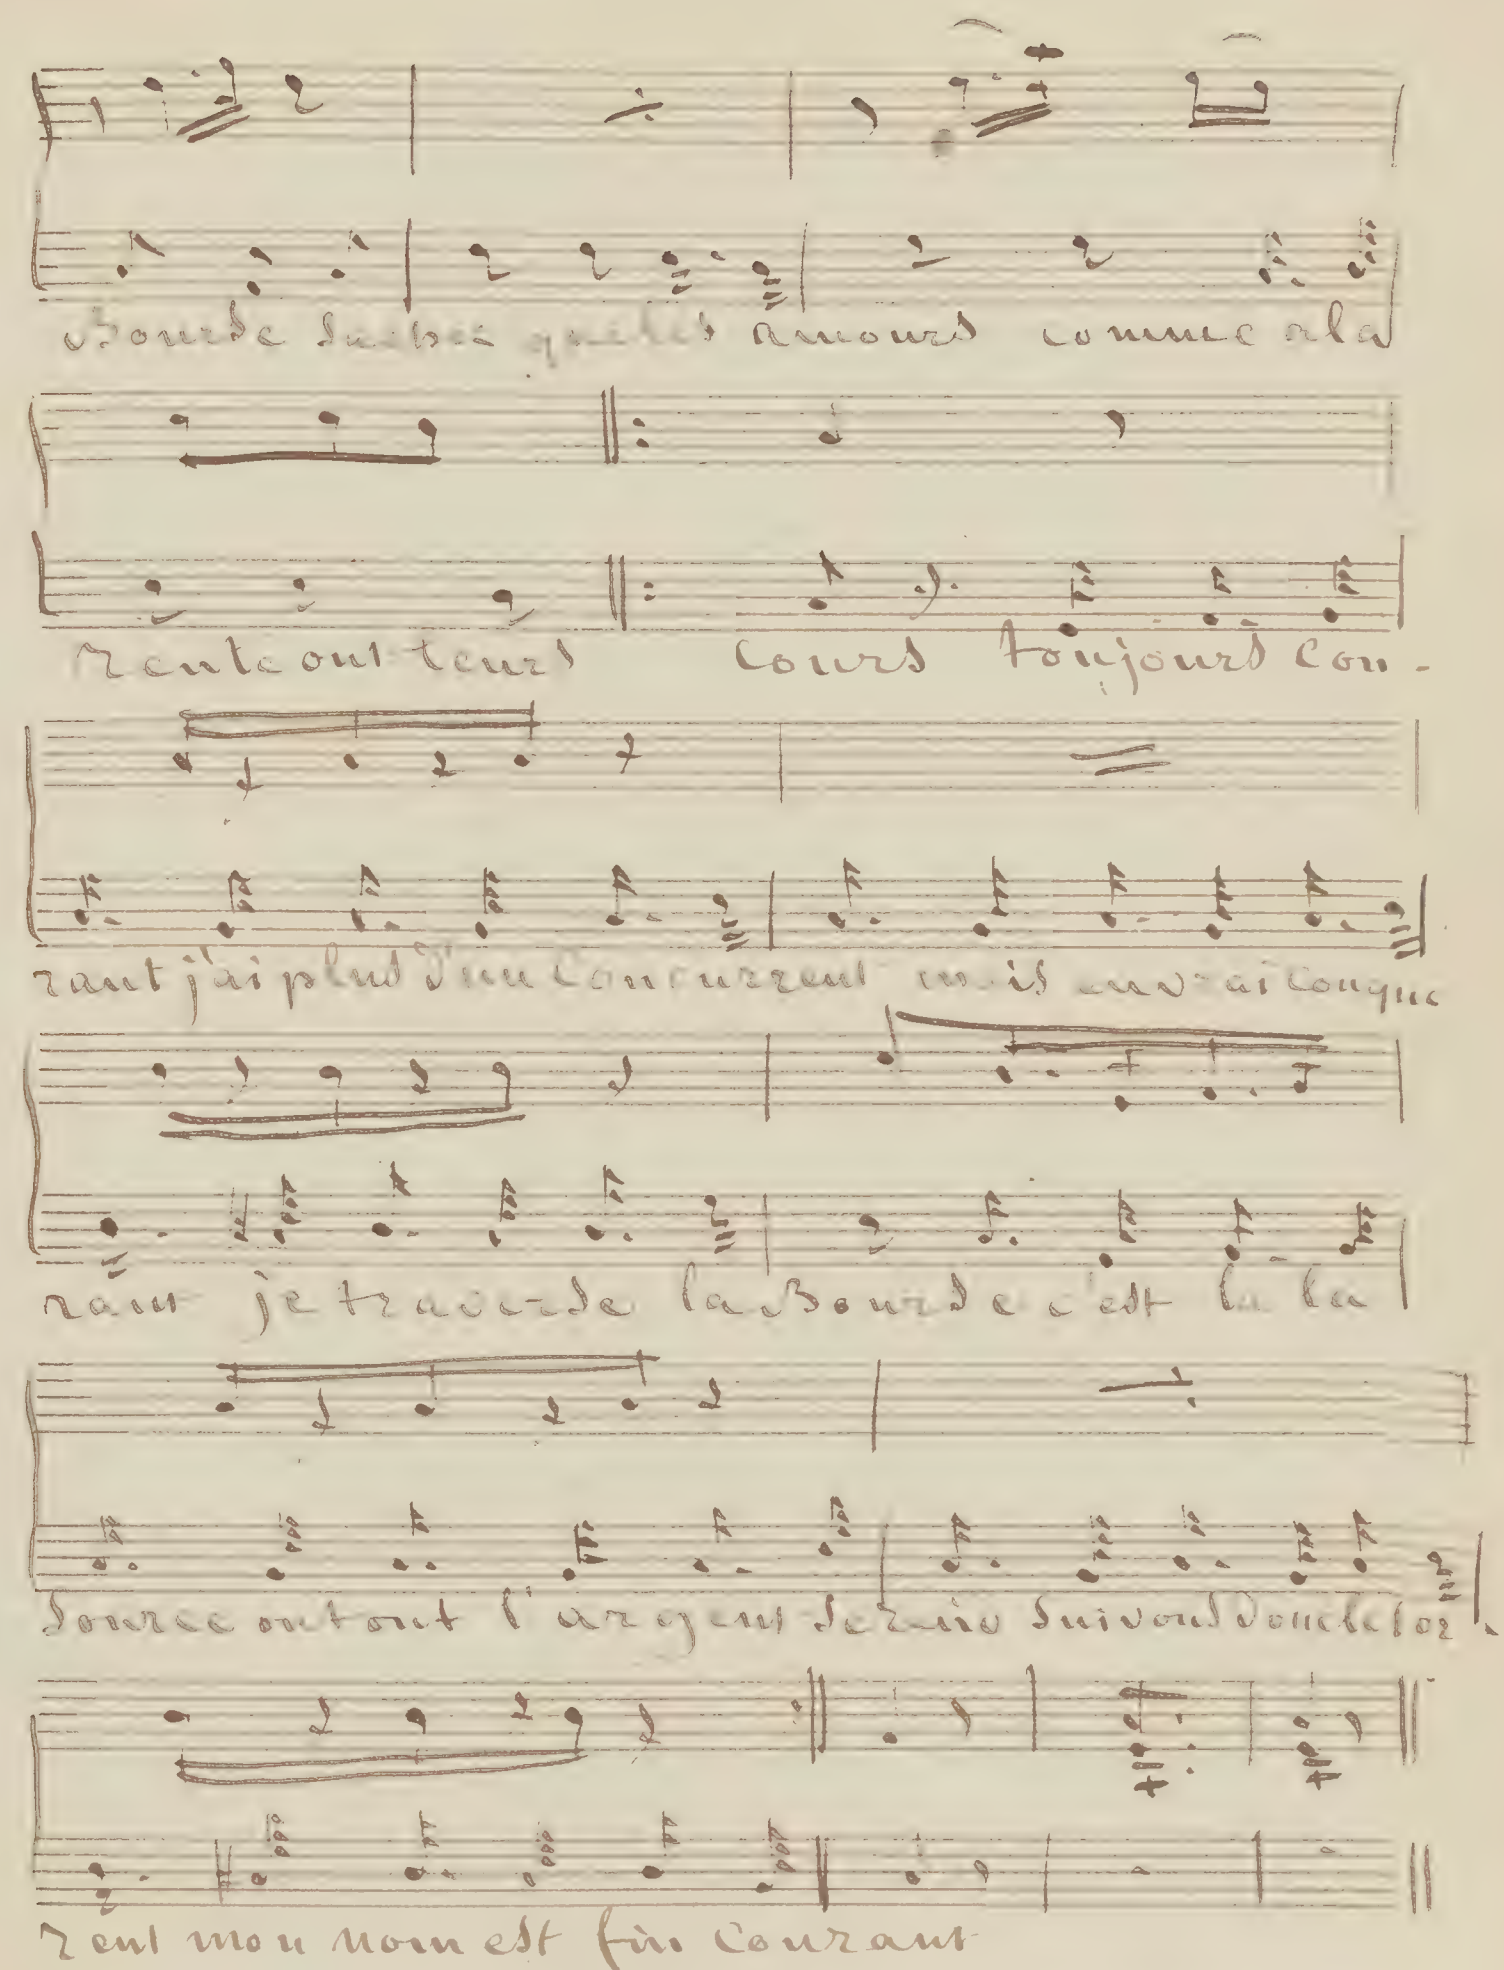 Bourse sachez que les amours comme a la
rente ont leurs cours toujours cou-
rant j'ai plus d'un concurrent mais en vrai conque
rant je traverse la Bourse c'est la la
source ou tout l'argent se rue suivons donc le tor-
rent mon nom est fin courant